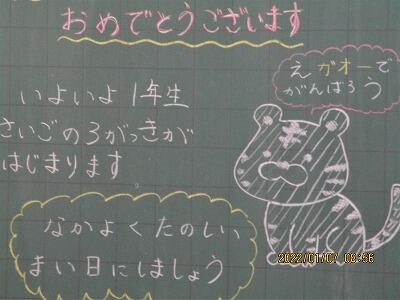 おめでとうございます
えガオーで
がんばろう
いよいよ1年生
さいごの3がっきが
はじまります
なかよくたのしい
まい日にしましょう
2022/01/07 08:56